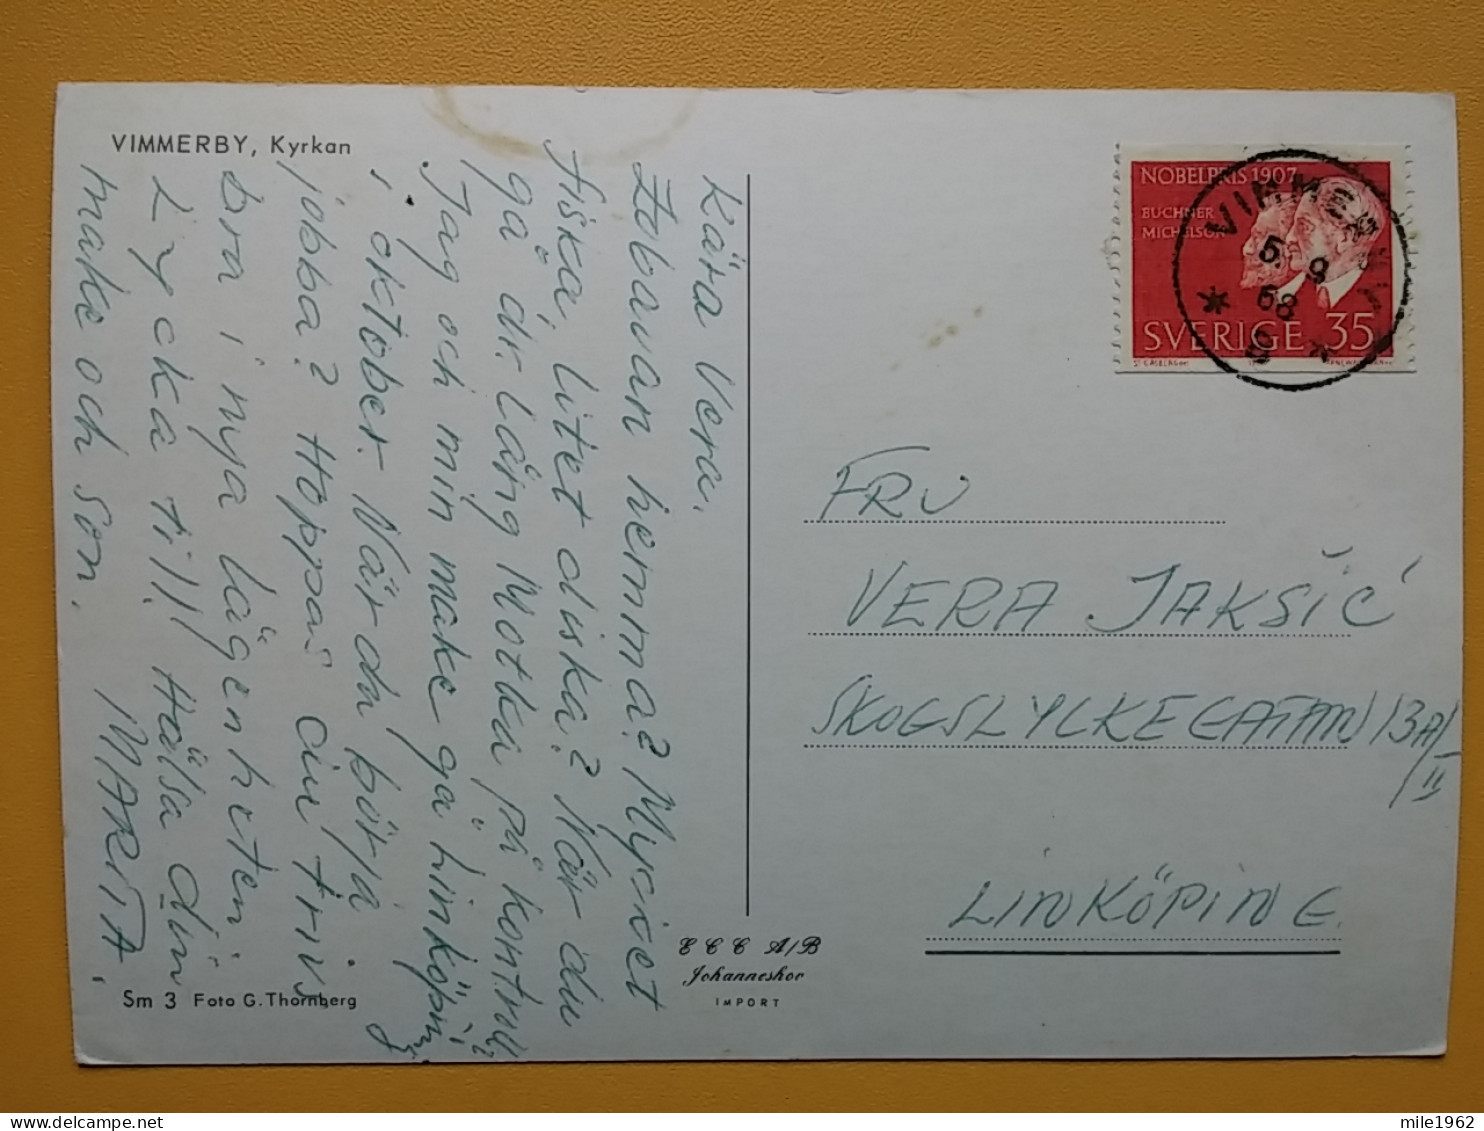 VIMMERBY, Kyrkan
Kära Vera.
hemma? Mycket
fiska, litet diska? När du
gå dr. Lång Motka på kontroll?
Jag och min make gå Linköping
i oktober. När du börja
jobba? Hoppas du trivs
bra i nya lägenheten.
Lycka till! Hälsa din
make och son.
MARTA.
Sm 3 Foto G. Thornberg
E C C A/B
Johanneshov
IMPORT
NOBELPRIS 1907
BUCHNER
MICHELSON
SVERIGE 35
VIMMERBY
5. 9
68
FRU
VERA JAKŠIĆ
SKOGSLYCKEGATAN 13A/II
LINKÖPING.
mile1962